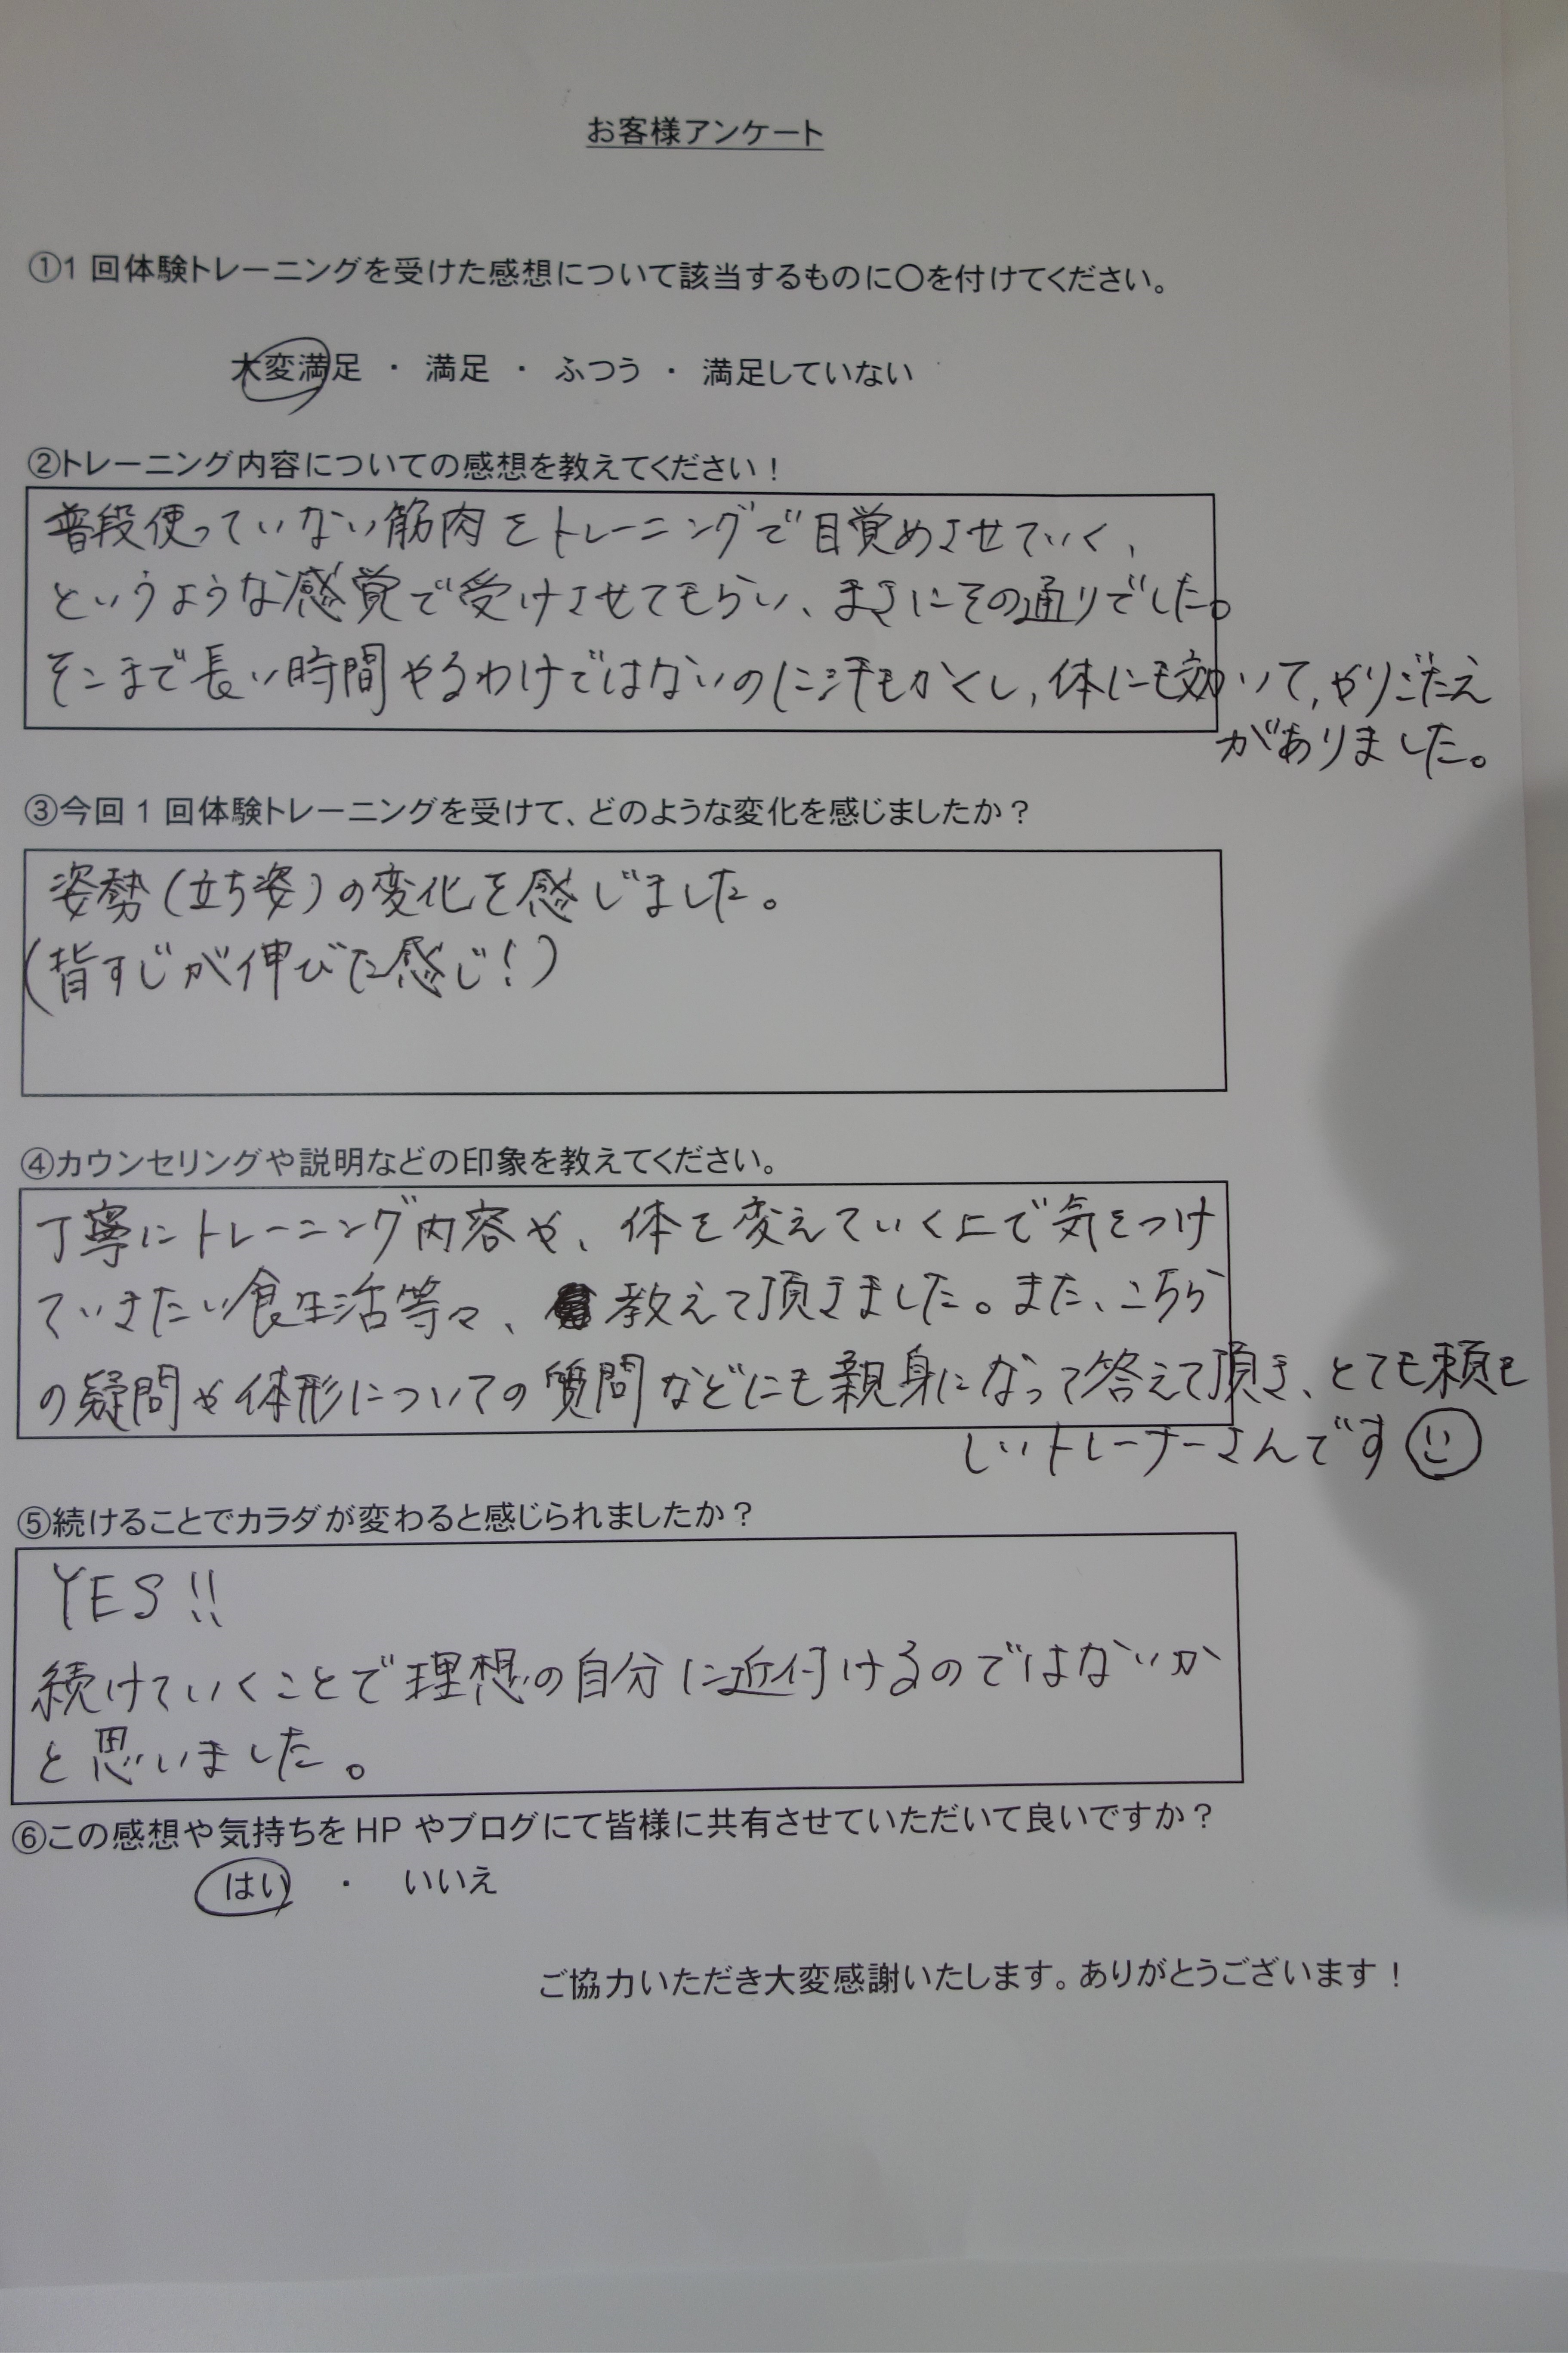 お客様アンケート
①1 回体験トレーニングを受けた感想について該当するものに〇を付けてください。
大変満足 ・ 満足 ・ ふつう ・ 満足していない
②トレーニング内容についての感想を教えてください！
普段使っていない筋肉をトレーニングで目覚めさせていく、
というような感覚で受けさせてもらい、まさにその通りでした。
そこまで長い時間やるわけではないのに汗もかくし、体にも効いて、やりごたえ
がありました。
③今回 1 回体験トレーニングを受けて、どのような変化を感じましたか？
姿勢(立ち姿)の変化を感じました。
(背すじが伸びた感じ!)
④カウンセリングや説明などの印象を教えてください。
丁寧にトレーニング内容や、体を変えていく上で気をつけ
ていきたい食生活等々、教えて頂きました。また、こちら
の疑問や体形についての質問などにも親身になって答えて頂き、とても頼も
しいトレーナーさんです
⑤続けることでカラダが変わると感じられましたか？
YES!!
続けていくことで理想の自分に近付けるのではないか
と思いました。
⑥この感想や気持ちを HP やブログにて皆様に共有させていただいて良いですか？
はい ・ いいえ
ご協力いただき大変感謝いたします。ありがとうございます！